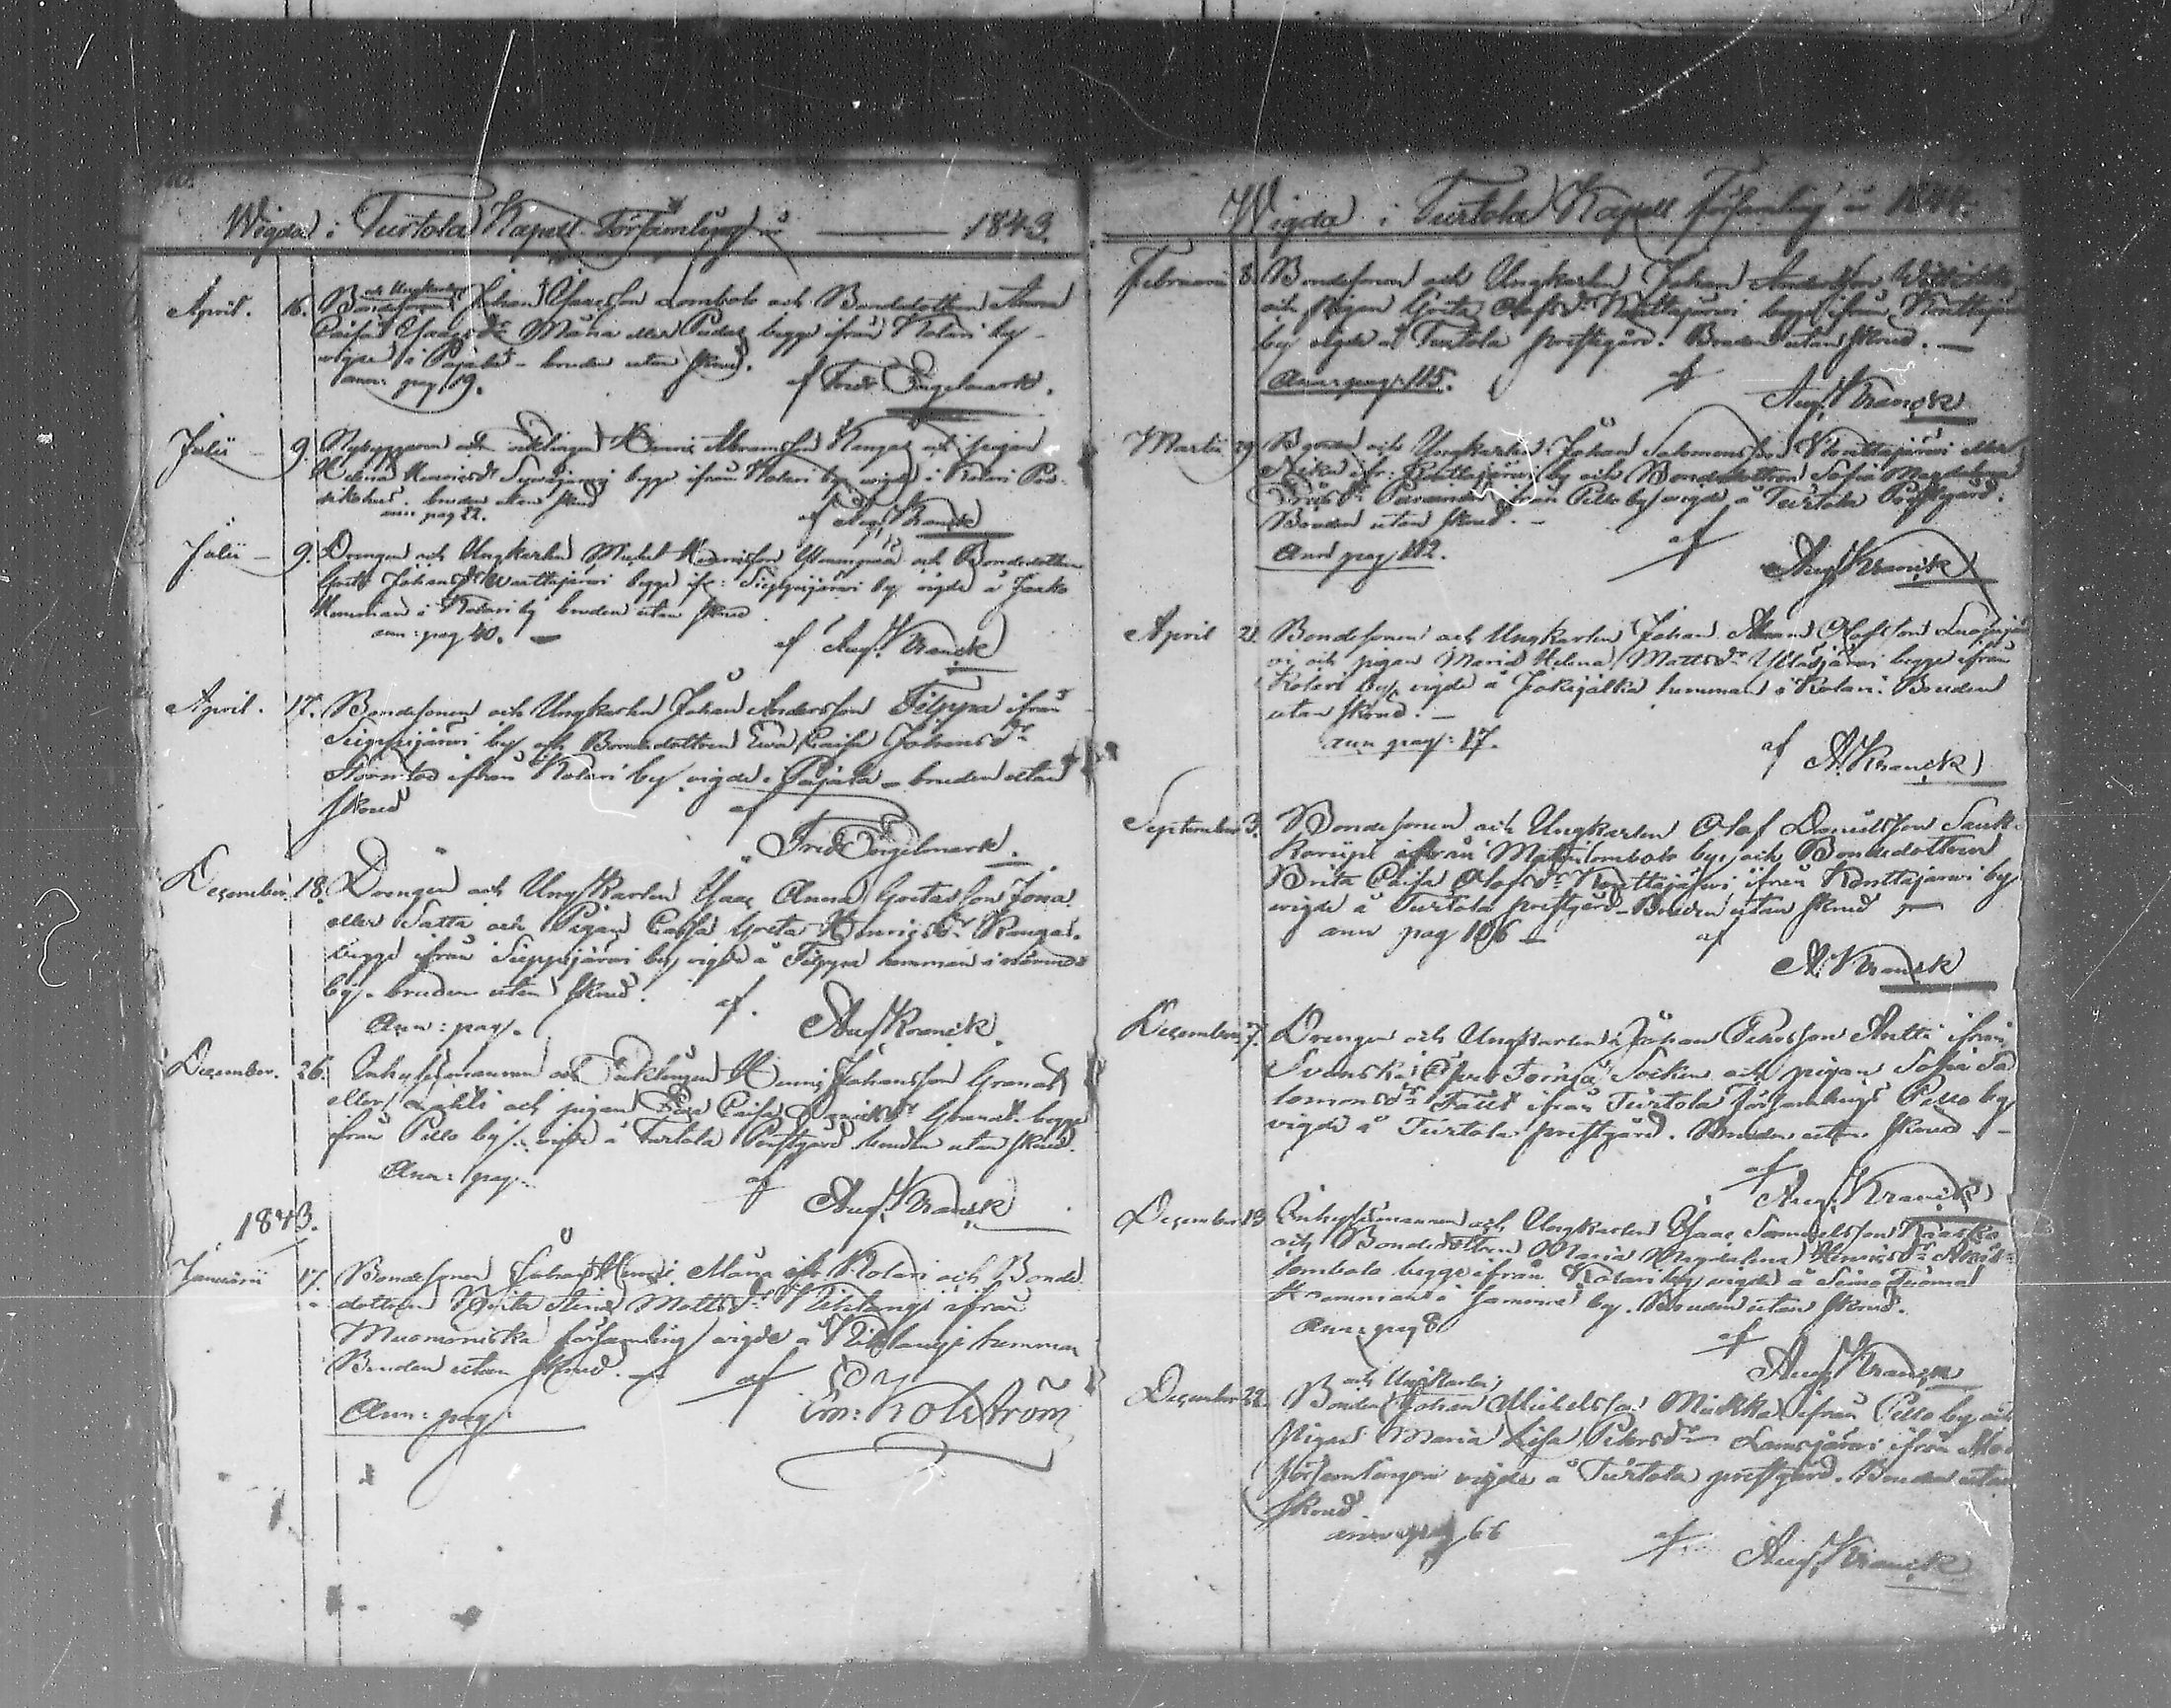 Wigda i Turtola Kapell Församling år 1843.
April. 16. Bondesonen och Ungkarlen Johan Isacsson Lombolo och Bondedottren Anna
Caisa Isacsdr Mäna eller Pudas begge ifrån Kolari by
vigde i Pajala - bruden utan skrud.
ann: pag 19. af Fredr Engelmark.
Julii 9. Nybyggaren och enklingen Henric Abramsson Kangas och pigan
Helena Henricsdr begge ifrån Kolari by vigde i Kolari
bruden utan skrud
ann pag 22. af Aug: Kranck
Julii 9. Drengen och Ungkarlen Michel Henricsson och Bondedottren
Greta Johansdr begge ifr: Sieppijärvi by vigde å
Hemman i Kolari by bruden utan skrud
ann: pag 40. af Aug: Kranck
April. 17. Bondesonen och Ungkarlen Johan Andersson Filppa ifrån
Sieppijärvi by och Bondedottren Eva Caisa Johansdr
ifrån Kolari by vigde i Pajala - bruden utan
skrud af
Fredr Engelmark.
December. 18. Drengen och Ungkarlen Isac Anna Gretasson Jona
eller Satta och Pigan Caisa Greta Henricsdr Kangas.
begge ifrån Sieppijärvi by vigde å Filppa hemman i
by. bruden utan skrud. af.
Ann: pag. Aug Kranck.
December. 26. Inhysesmannen och Enklingen Henric Johansson Granat
eller Lahti och pigan Caisa Granat begge
ifrån Pello by vigde å Turtola Prestgård bruden utan skrud.
Ann: pag: af
Aug: Kranck
1843.
Januarii 17. Bondesonen Johan Mäna ifr Kolari och Bonde
dottren Brita Stina Mattsdr Kihlangi ifrån
Muonioniska församling vigde å Kihlangi hemman
Bruden utan skrud. af
Ann: pag: Em: Kolström
Wigda i Turtola Kapell Församling år 1844.
Februarii 8. Bondesonen och Ungkarlen Johan Andersson
och pigan Greta Olofsdr Konttajärvi begge ifrån Konttajärvi
by vigde å Turtola prestgård. Bruden utan skrud.
Ann: pag: 115. af
Aug: Kranck
Martii 29. Bonden och Ungkarlen Johan Salomonsson Konttajärvi eller
ifr: Konttajärvi by och Bondedottren Sofia Magdalena
från Pello by vigde å Turtola Prestgård.
Bruden utan skrud. -
Ann pag 112. af
Aug Kranck
April 21. Bondesonen och Ungkarlen Johan Abram Olofsson
och pigan Maria Helena Mattsdr Ylläsjärvi begge ifrån
Kolari by vigde å Jokijalka hemman i Kolari. Bruden
utan skrud. -
ann pag: 17. af A: Kranck
September 3. Bondesonen och Ungkarlen Olof Danielsson Sauk-
koriipi ifrån by och Bondedottren
Brita Caisa Olofsdr Konttajärvi ifrån Konttajärvi by
vigde å Turtola prestgård - Bruden utan skrud
ann pag 106 af
A: Kranck
December 7. Drengen och Ungkarlen Johan Pehrsson Antti ifrån
Svenska Öfver Torneå Socken och pigan Sofia Sa
lomonsdr Fält ifrån Turtola Församlings Pello by
vigde å Turtola prestgård. Bruden utan skrud -
af
Aug: Kranck
December 13. Inhysesmannen och Ungkarlen Isac Samuelsson
och Bondedottren Maria Magdalena Henricsdr
lombolo begge ifrån Kolari by vigde å Simo Tuomas
Hemman i samma by. Bruden utan skrud.
Ann: pag 8 af
Aug Kranck
December 22. Bonden och Ungkarlen Johan Michelsson Miukka ifrån Pello by och
Pigan Maria Lisa Pehrsdr ifrån
församlingen vigde å Turtola prestgård. Bruden utan
skrud
ann pag 66 af
Aug: Kranck